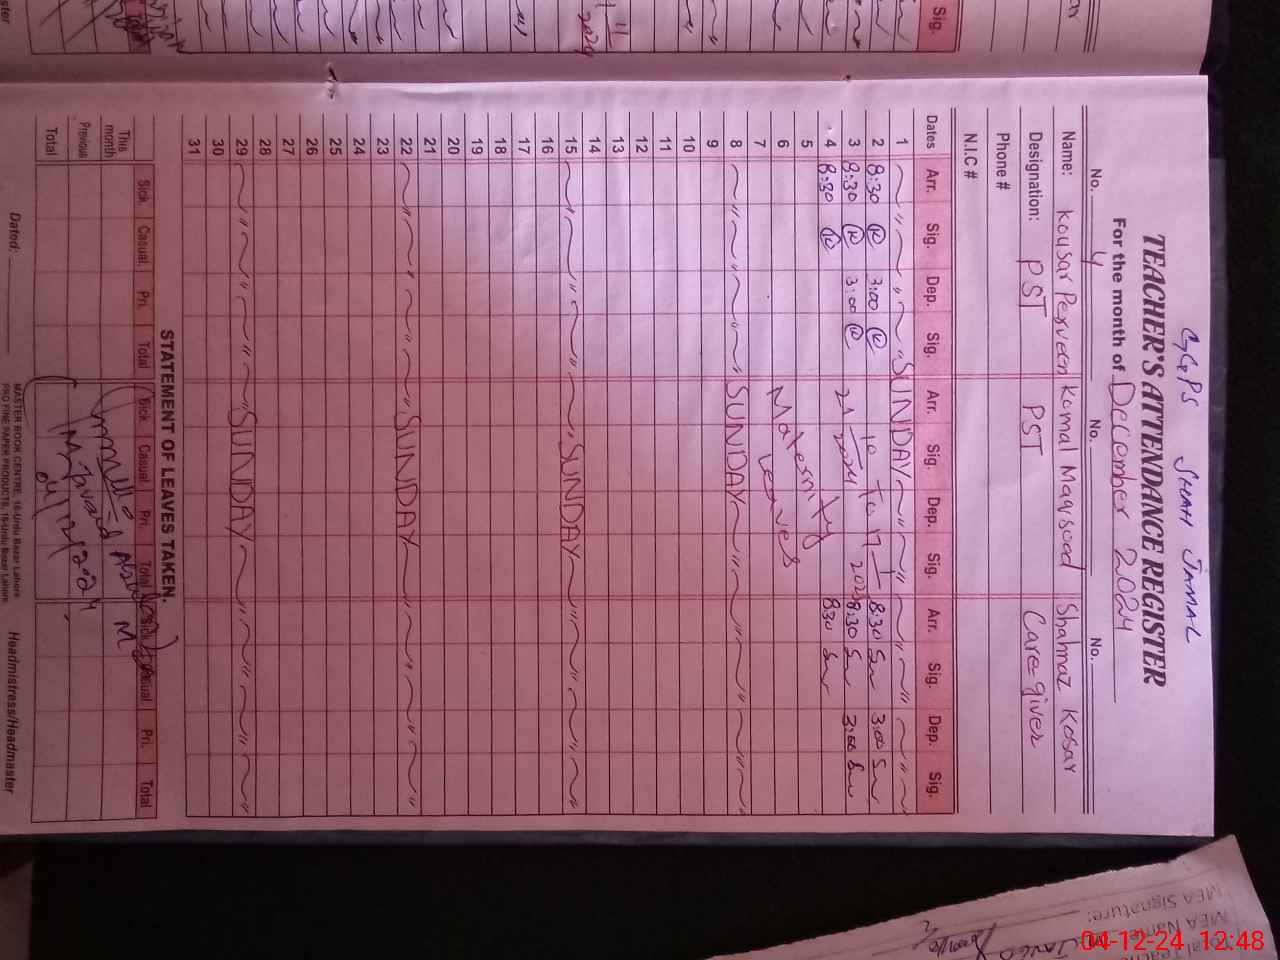 GGPS SHAH JAMAL
TEACHER'S ATTENDANCE REGISTER
For the month of December 2024
No. 4 No. No.
Name: Kousar Perveen Komal Maqsood Shahnaz Kosar
Designation: PST PST Care giver
Phone #
N.I.C #
Dates Arr. Sig. Dep. Sig. Arr. Sig. Dep. Sig. Arr. Sig. Dep. Sig.
1 SUNDAY
2 8:30 3:00 8:30 3:00
3 8:30 3:00 8:30 3:00
4 8:30 830
5
6 Maternity
7 Leaves
8 SUNDAY
9
10
11
12
13
14
15 SUNDAY
16
17
18
19
20
21
22 SUNDAY
23
24
25
26
27
28
29 SUNDAY
30
31
STATEMENT OF LEAVES TAKEN.
Sick. Casual. Pri. Total Sick. Casual. Pri. Total Sick. Casual Pri. Total
This month
Previous
Total
04/12/2024
Dated:
MASTER BOOK CENTRE, 16-Urdu Bazar Lahore
PRO FINE PAPER PRODUCTS, 16-Urdu Bazar Lahore
Headmistress/Headmaster
Sig.
MEA Name
MEA Signature:
04-12-24 12:48